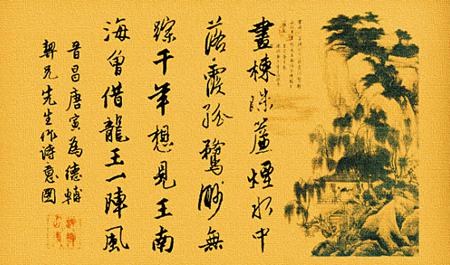 畫棟珠簾煙水中
落霞孤鶩渺無
蹤千年想見王南
海曾借龍王一陣風
晉昌唐寅為德輔
契兄先生作詩意圖